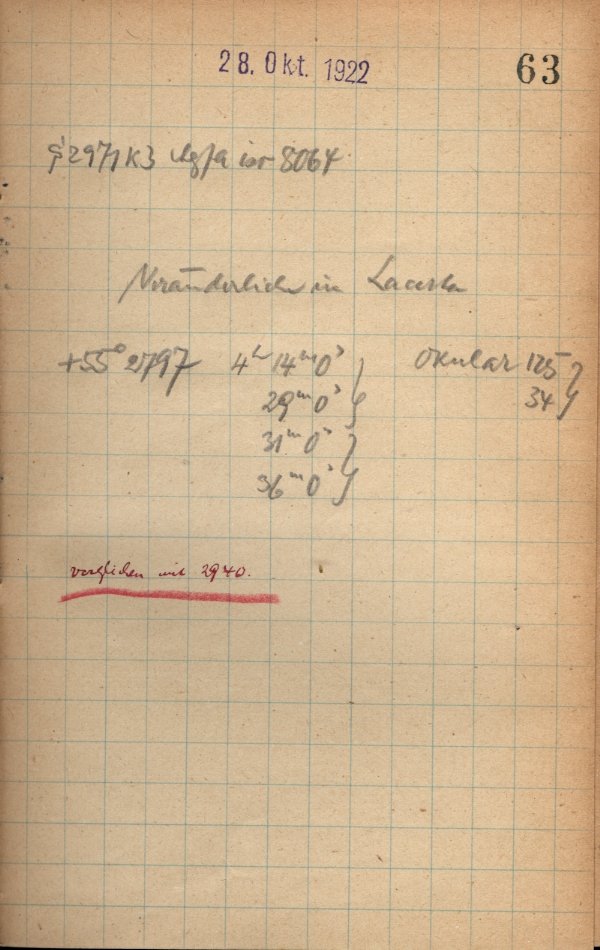 28. Okt. 1922
63
2971 K3 Agfa iso 8064
Veränderliche in Lacerta
+55° 2797 4h 14m 0s } Okular 125 }
29m 0s } 34 }
31m 0s }
36m 0s }
verglichen mit 2940.